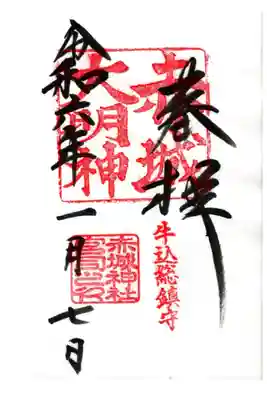 奉拝
赤城
大明神
牛込總鎮守
令和六年一月七日
赤城神社
宮司之印